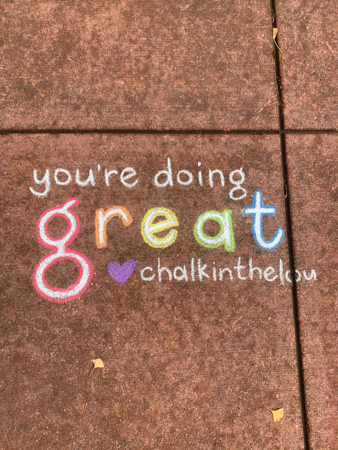 you're doing
great
chalkinthelou